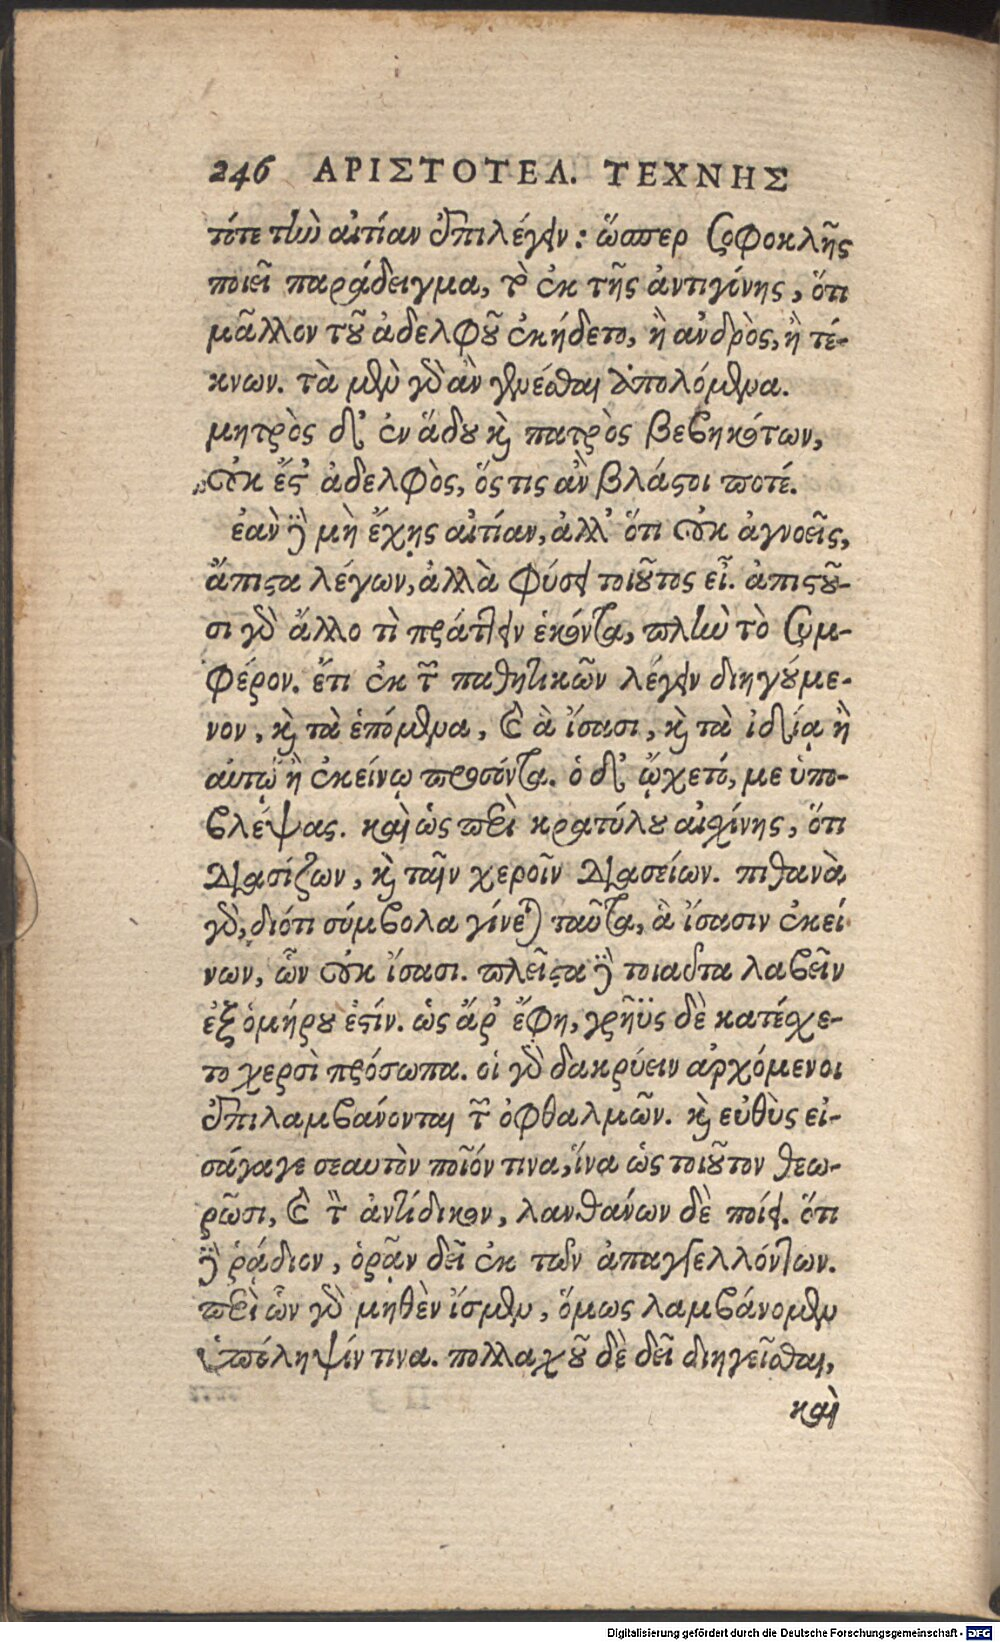 246 ΑΡΙΣΤΟΤΕΛ. ΤΕΧΝΗΣ
τότε τὴν αἰτίαν ἐπιλέγειν: ὥσπερ Σοφοκλῆς
ποιεῖ παράδειγμα, τὸ ἐκ τῆς ἀντιγόνης, ὅτι
μᾶλλον τοῦ ἀδελφοῦ ἐκήδετο, ἢ ἀνδρὸς, ἢ τέ-
κνων. τὰ μὲν γὰρ ἂν γενέσθαι ἀπολόμενα.
μητρὸς δ' ἐν ἅδου καὶ πατρὸς βεβηκότων,
„οὐκ ἔστ' ἀδελφὸς, ὅς τις ἂν βλάστοι ποτέ.
ἐὰν δὲ μὴ ἔχῃς αἰτίαν, ἀλλ' ὅτι οὐκ ἀγνοεῖς,
ἄπιστα λέγων, ἀλλὰ φύσει τοιοῦτος εἶ. ἀπιστοῦ-
σι γὰρ ἄλλο τὶ πράττειν ἑκόντα, πλὴν τὸ συμ-
φέρον. ἔτι ἐκ τῶν παθητικῶν λέγειν διηγούμε-
νον, καὶ τὰ ἑπόμενα, καὶ ἃ ἴσασι, καὶ τὰ ἰδίᾳ ἢ
αυτῷ ἢ ἐκείνῳ προσόντα. ὁ δ' ᾤχετό, με ὑπο-
βλέψας. καὶ ὡς περὶ κρατύλου αἰσχίνης, ὅτι
διασίζων, καὶ ταῖν χεροῖν διασείων. πιθανὰ
γὰρ, διότι σύμβολα γίνεται ταῦτα, ἃ ἴσασιν ἐκεί
νων, ὧν οὐκ ἴσασι. πλεῖστα δὲ τοιαῦτα λαβεῖν
ἐξ ὁμήρου ἐστίν. ὡς ἄρ' ἔφη, γρῆϋς δὲ κατέσχε-
το χερσὶ πρόσωπα. οἱ γὰρ δακρύειν ἀρχόμενοι
ἐπιλαμβάνονται τῶν ὀφθαλμῶν. καὶ εὐθὺς εἰ-
σάγαγε σεαυτὸν ποῖόν τινα, ἵνα ὡς τοιοῦτον θεω-
ρῶσι, καὶ τὸν ἀντίδικον, λανθάνων δὲ ποίει. ὅτι
δὲ ῥᾴδιον, ὁρᾷν δεῖ ἐκ τῶν ἀπαγγελλόντων.
περὶ ὧν γὰρ μηθὲν ἴσμεν, ὅμως λαμβάνομεν
ὑπόληψίν τινα. πολλαχοῦ δὲ δεῖ διηγεῖσθαι,
καὶ
Digitalisierung gefördert durch die Deutsche Forschungsgemeinschaft - DFG